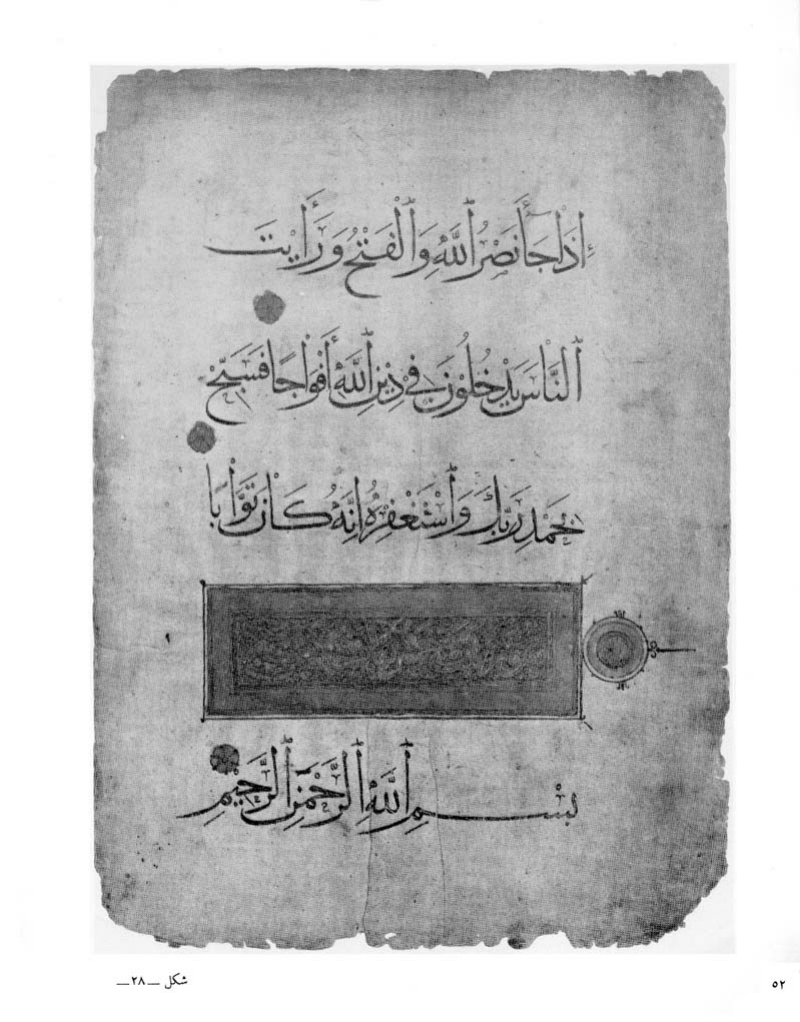 إِذَا جَاءَ نَصْرُ ٱللَّهِ وَٱلْفَتْحُ وَرَأَيْتَ
ٱلنَّاسَ يَدْخُلُونَ فِي دِينِ ٱللَّهِ أَفْوَاجًا فَسَبِّحْ
بِحَمْدِ رَبِّكَ وَٱسْتَغْفِرْهُ إِنَّهُ كَانَ تَوَّابًا
بِسْمِ ٱللَّهِ ٱلرَّحْمَٰنِ ٱلرَّحِيمِ
شكل —٢٨—
٥٢